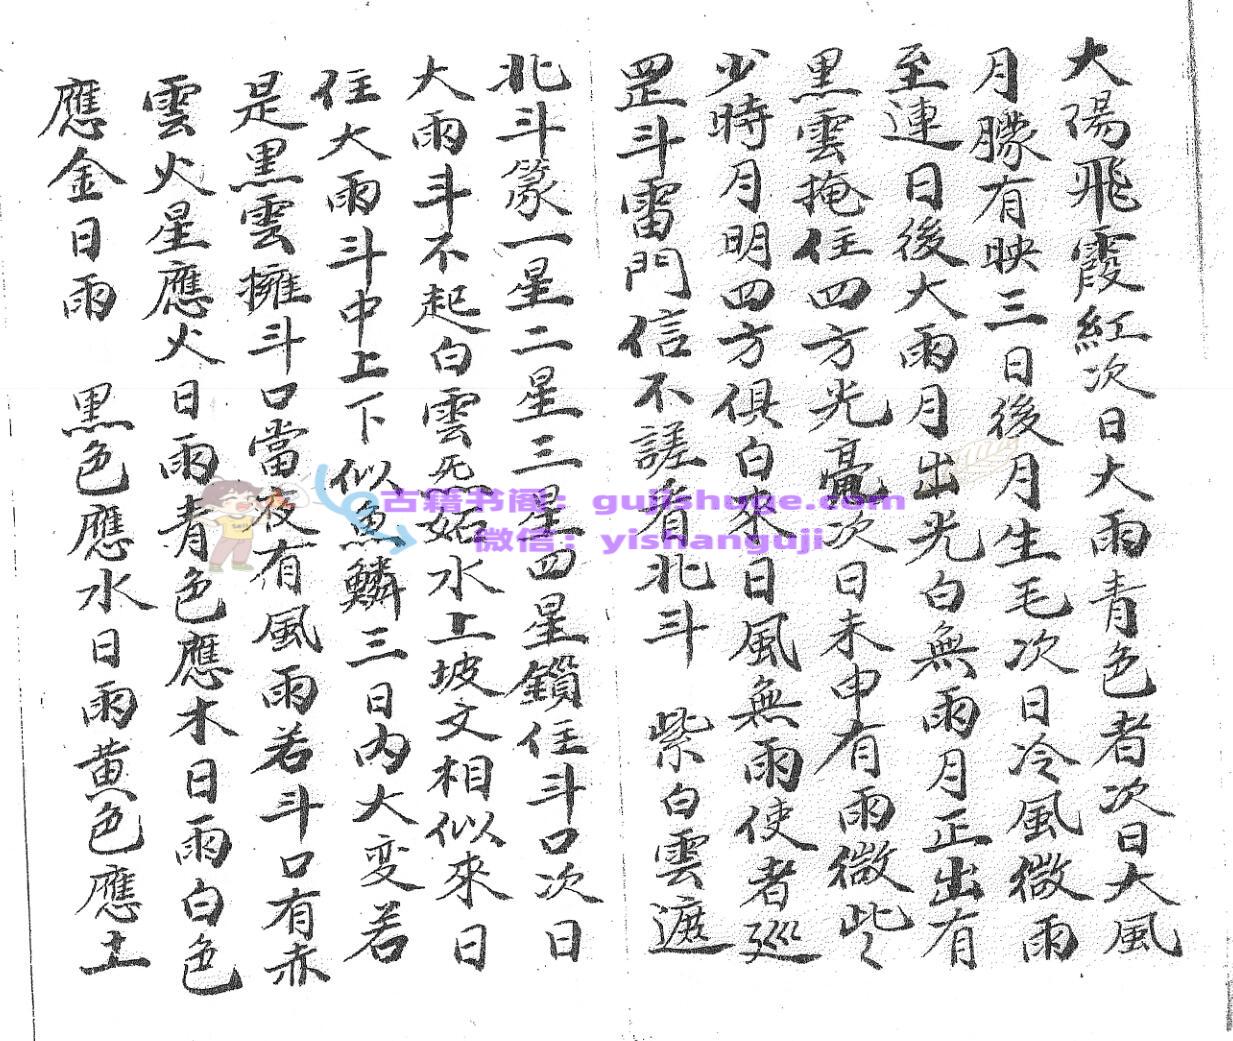 大陽飛霞紅次日大雨青色者次日大風
月朦有映三日後月生毛次日冷風微雨
至連日後大雨月出光白無雨月正出有
黑雲掩住四方光毫次日未申有雨微些
少時月明四方俱白來日風無雨使者廵
罡斗雷門信不謎看北斗 紫白雲遮
北斗篆一星二星三星四星鎖住斗口次日
大雨斗不起白雲炁如水上坡文相似來日
住大雨斗中上下似魚鱗三日內大变若
是黑雲擁斗口當夜有風雨若斗口有赤
雲火星應火日雨青色應木日雨白色
應金日雨 黑色應水日雨黃色應土
古籍书阁：gujishuge.com
微信：yishanguji